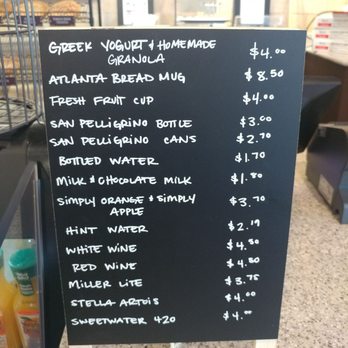 GREEK YOGURT & HOMEMADE GRANOLA $4.00
ATLANTA BREAD MUG $8.50
FRESH FRUIT CUP $4.00
SAN PELLIGRINO BOTTLE $3.00
SAN PELLIGRINO CANS $2.70
BOTTLED WATER $1.70
MILK & CHOCOLATE MILK $1.80
SIMPLY ORANGE & SIMPLY APPLE $3.70
HINT WATER $2.19
WHITE WINE $4.50
RED WINE $4.50
MILLER LITE $3.75
STELLA ARTOIS $4.00
SWEETWATER 420 $4.00